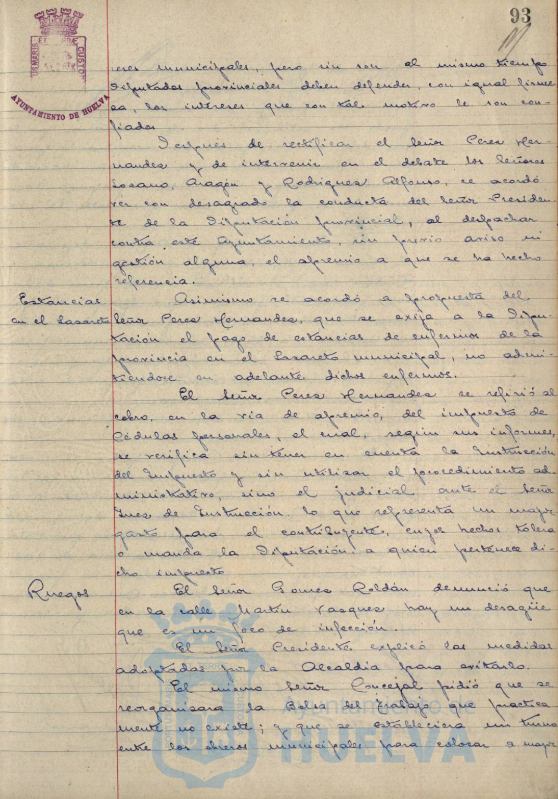 93
AYUNTAMIENTO DE HUELVA
eres municipales, pero sin son al mismo tiempo
Diputados provinciales deben defender, con igual firme
za, los intereses que con tal motivo le son con
fiados
Después de rectificar el Señor Perez Her-
nandez y de intervenir en el debate los Señores
Lozano, Aragón y Rodriguez Alfonso, se acordó
ver con desagrado la conducta del Señor Presiden-
te de la Diputación provincial, al despachar
contra este Ayuntamiento, sin previo aviso ni
gestión alguna, el apremio a que se ha hecho
referencia.
Estancias
en el Lazareto
Asimismo se acordó a propuesta del
Señor Perez Hernandez, que se exija a la Dipu-
tación el pago de estancias de enfermos de la
provincia en el Lazareto municipal, no admi-
tiendose en adelante dichos enfermos.
El Señor Perez Hernandez se refirió al
cobro, en la via de apremio, del impuesto de
Cédulas personales, el cual, según sus informes,
se verifica sin tener en cuenta la Instrucción
del Impuesto y sin utilizar el procedimiento ad-
ministrativo, sino el judicial ante el Señor
Juez de Instrucción, lo que representa un mayor
gasto para el contribuyente, cuyos hechos tolera
o manda la Diputación, a quien pertenece di-
cho impuesto
Ruegos
El Señor Gomez Roldán denunció que
en la calle Martin Vazquez hay un desagüe
que es un foco de infección.
El Señor Presidente explicó las medidas
adoptadas por la Alcaldia para evitarlo.
El mismo Señor Concejal pidió que se
reorganizara la Bolsa del Trabajo que practica
mente no existe; y que se estableciera un turno
entre los obreros municipales para colocar a mayor
Ayuntamiento
HUELVA